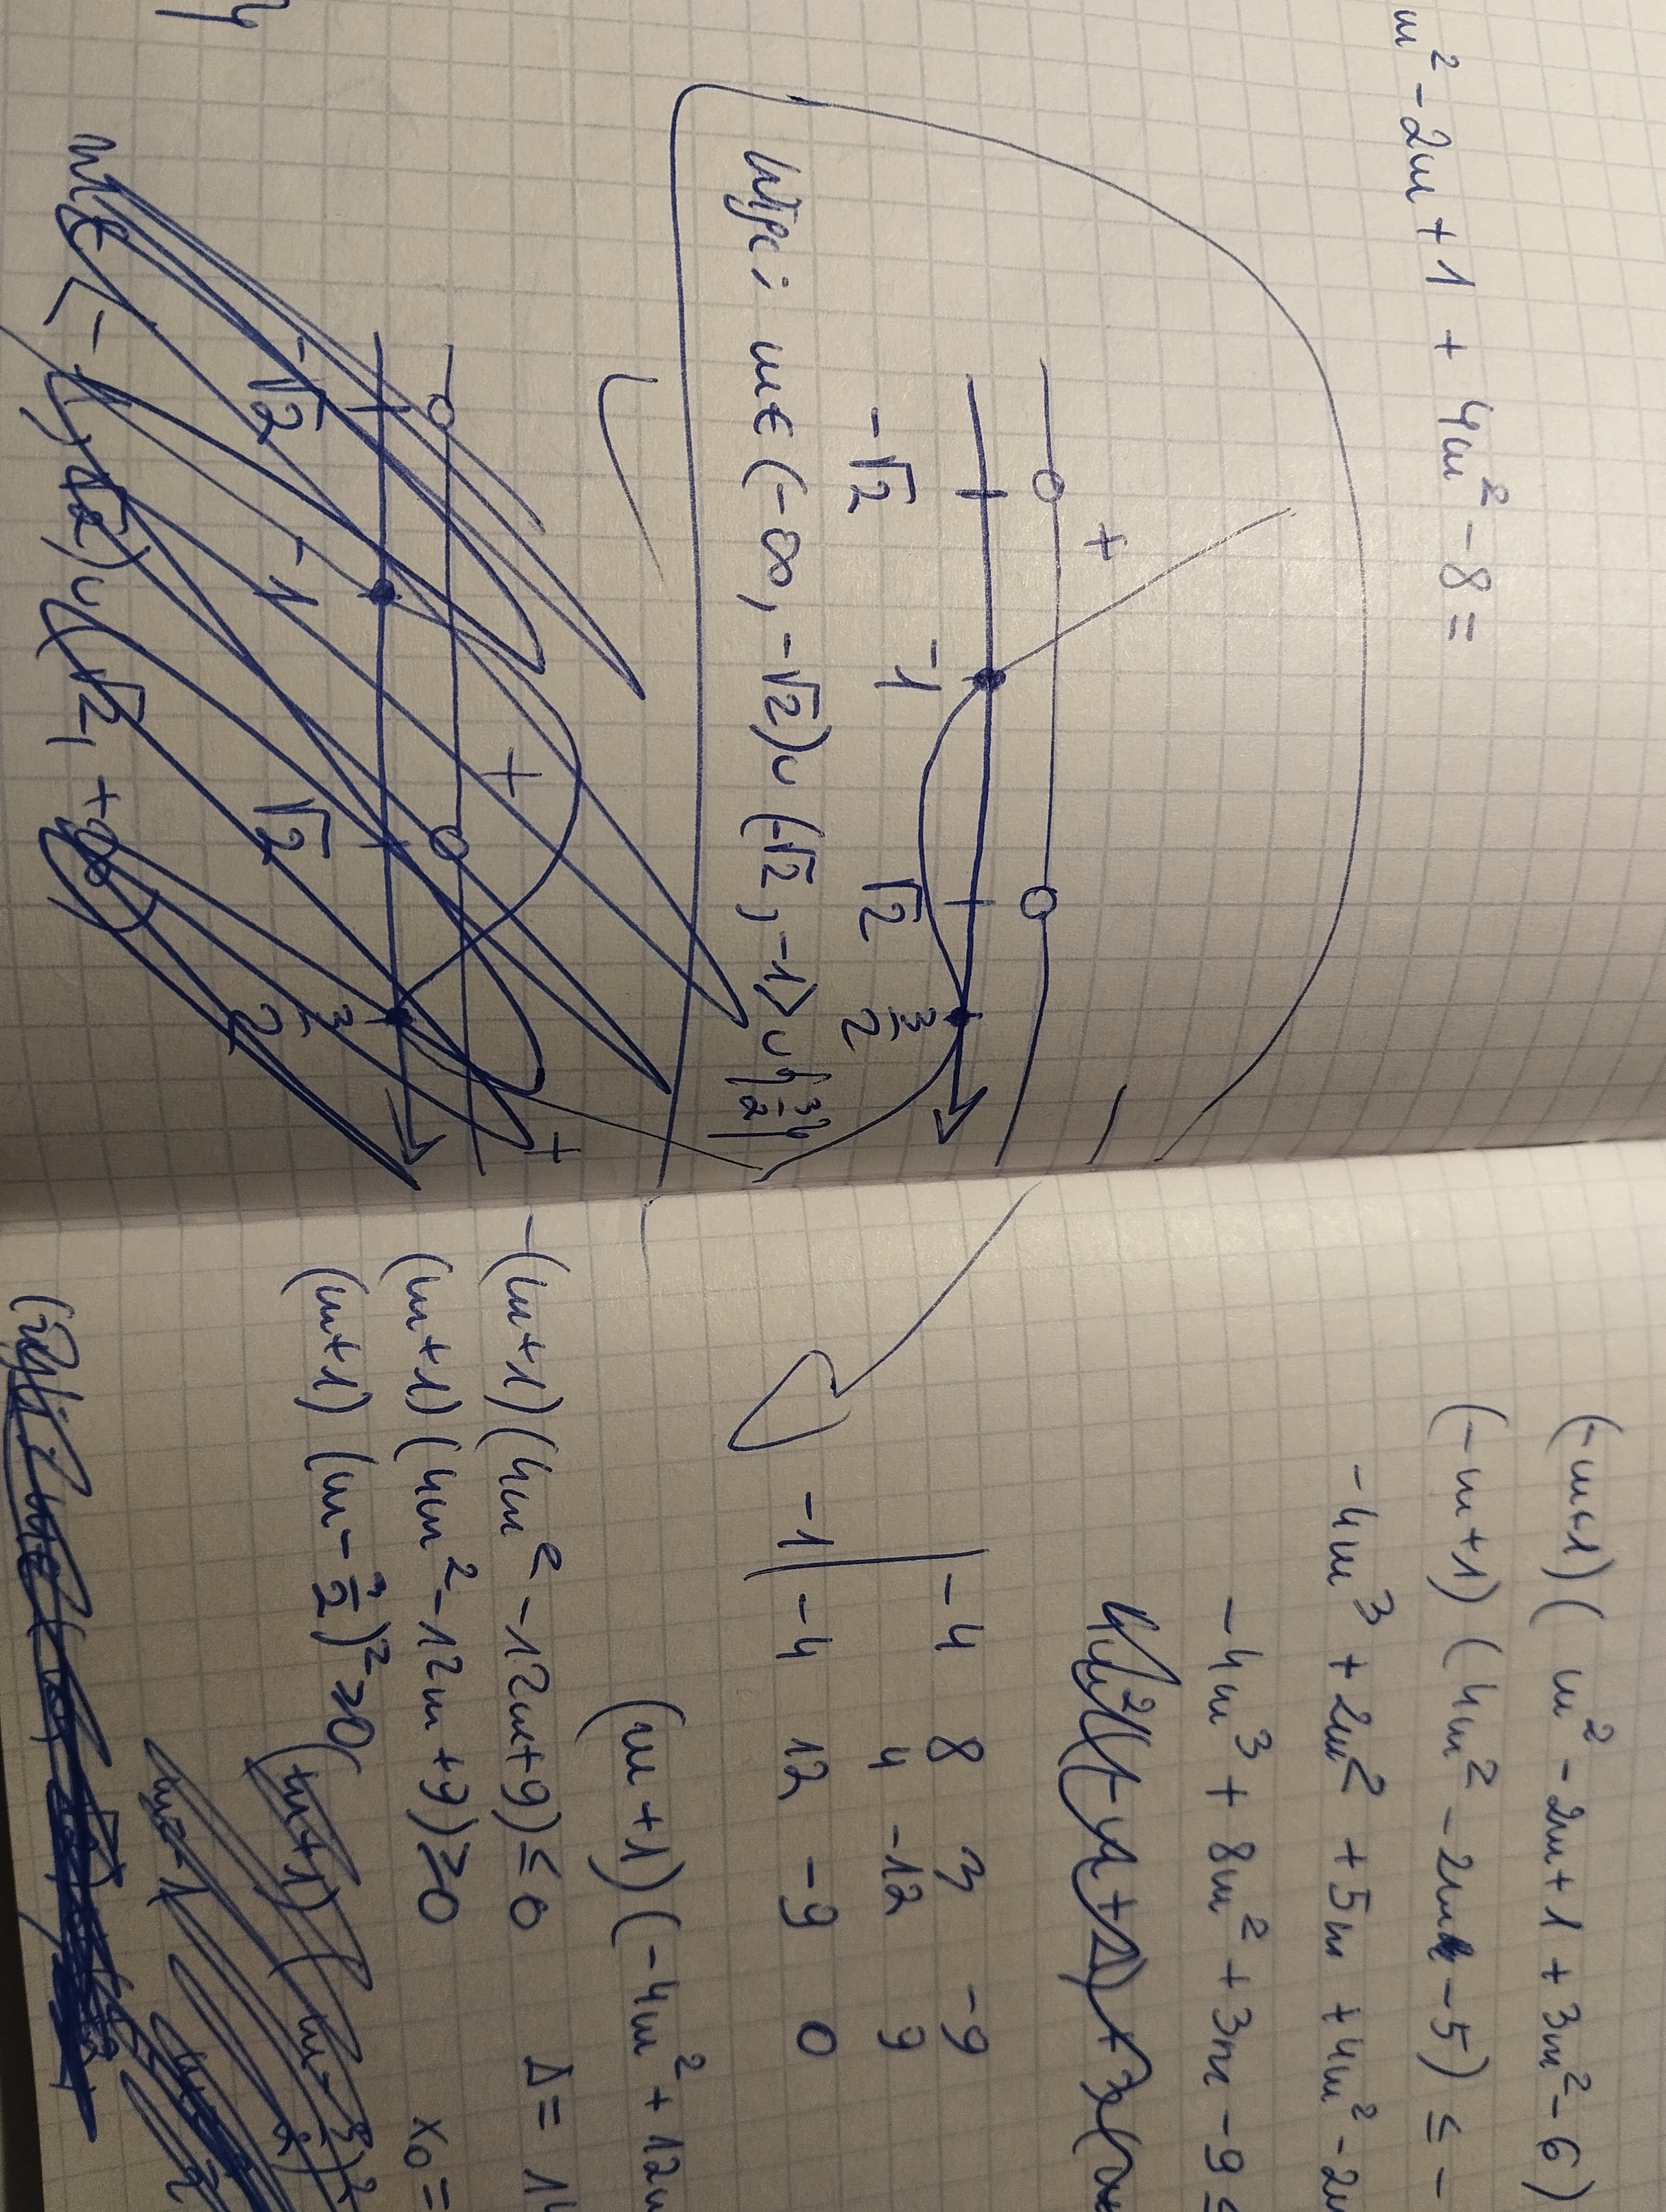 m² - 2m + 1 + 4m² - 8 =
+
-√2 -1 √2 3/2
Odp: m ∈ (-∞, -√2) ∪ (-√2, -1> ∪ {3/2}
+ +
-√2 -1 √2 3/2
m ∈ (-∞, -√2) ∪ (√2, +∞)
(-m+1)( m² - 2m + 1 + 3m² - 6)
(-m+1)(4m² - 2m - 5) ≤ -
-4m³ + 2m² + 5m + 4m² - 2m
-4m³ + 8m² + 3m - 9 ≤
-4 8 3 -9
4 -12 9
-1 -4 12 -9 0
(m+1)(-4m² + 12m
-(m+1)(4m² - 12m + 9) ≤ 0 Δ = 14
(m+1)(4m² - 12m + 9) ≥ 0 x₀ =
(m+1)(m - 3/2)² ≥ 0